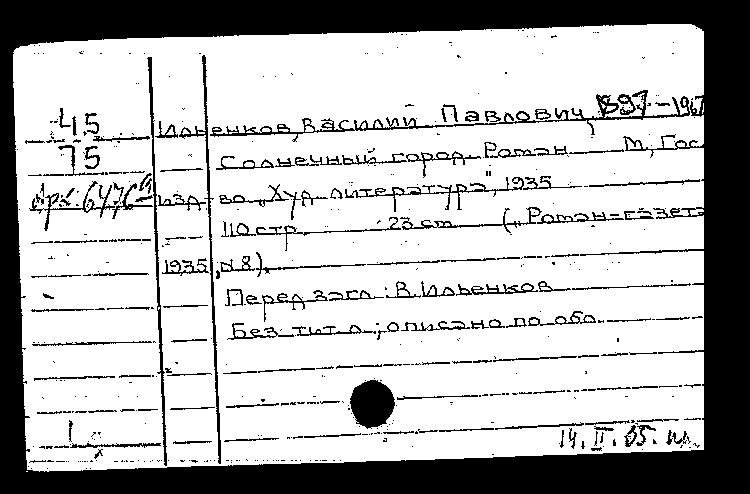 45
75
Арх. 6476а
Ильенков, Василий Павлович, 1897-1967
Солнечный город. Роман М, Гос.
изд-во „Худ. литература", 1935
110 стр. 23 cm („Роман-газета
1935, N8).
Перед загл: В. Ильенков
Без тит. л; описано по обл.
1
14. II. 65.